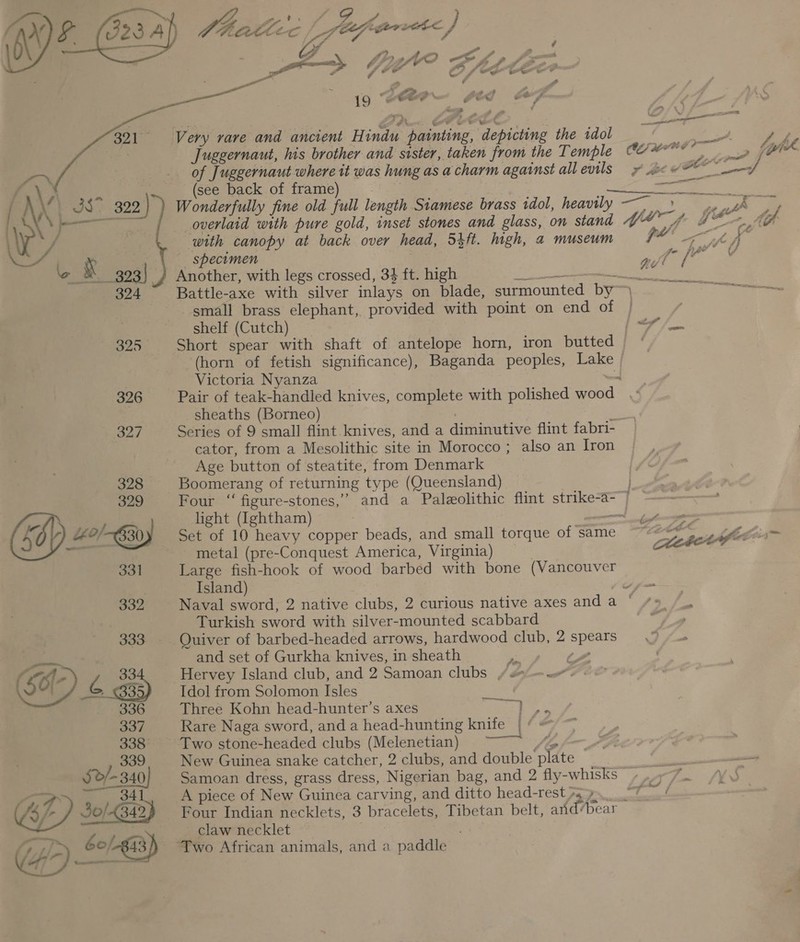 19
321 Very rare and ancient Hindu painting, depicting the idol
Juggernaut, his brother and sister, taken from the Temple
of Juggernaut where it was hung as a charm against all evils
(see back of frame)
35" 322 Wonderfully fine old full length Siamese brass idol, heavily
overlaid with pure gold, inset stones and glass, on stand
with canopy at back over head, 5½ft. high, a museum
specimen
323 Another, with legs crossed, 3½ ft. high
324 Battle-axe with silver inlays on blade, surmounted by
small brass elephant, provided with point on end of
shelf (Cutch)
325 Short spear with shaft of antelope horn, iron butted
(horn of fetish significance), Baganda peoples, Lake
Victoria Nyanza
326 Pair of teak-handled knives, complete with polished wood
sheaths (Borneo)
327 Series of 9 small flint knives, and a diminutive flint fabri-
cator, from a Mesolithic site in Morocco ; also an Iron
Age button of steatite, from Denmark
328 Boomerang of returning type (Queensland)
329 Four “ figure-stones,” and a Palæolithic flint strike-a-
light (Ightham)
40/- 330 Set of 10 heavy copper beads, and small torque of same
metal (pre-Conquest America, Virginia)
331 Large fish-hook of wood barbed with bone (Vancouver
Island)
332 Naval sword, 2 native clubs, 2 curious native axes and a
Turkish sword with silver-mounted scabbard
333 Quiver of barbed-headed arrows, hardwood club, 2 spears
and set of Gurkha knives, in sheath
334 Hervey Island club, and 2 Samoan clubs
335 Idol from Solomon Isles
336 Three Kohn head-hunter’s axes
337 Rare Naga sword, and a head-hunting knife
338 Two stone-headed clubs (Melenetian)
339 New Guinea snake catcher, 2 clubs, and double plate
50/- 340 Samoan dress, grass dress, Nigerian bag, and 2 fly-whisks
341 A piece of New Guinea carving, and ditto head-rest
30/- 342 Four Indian necklets, 3 bracelets, Tibetan belt, and bear
claw necklet
60/- 343 Two African animals, and a paddle